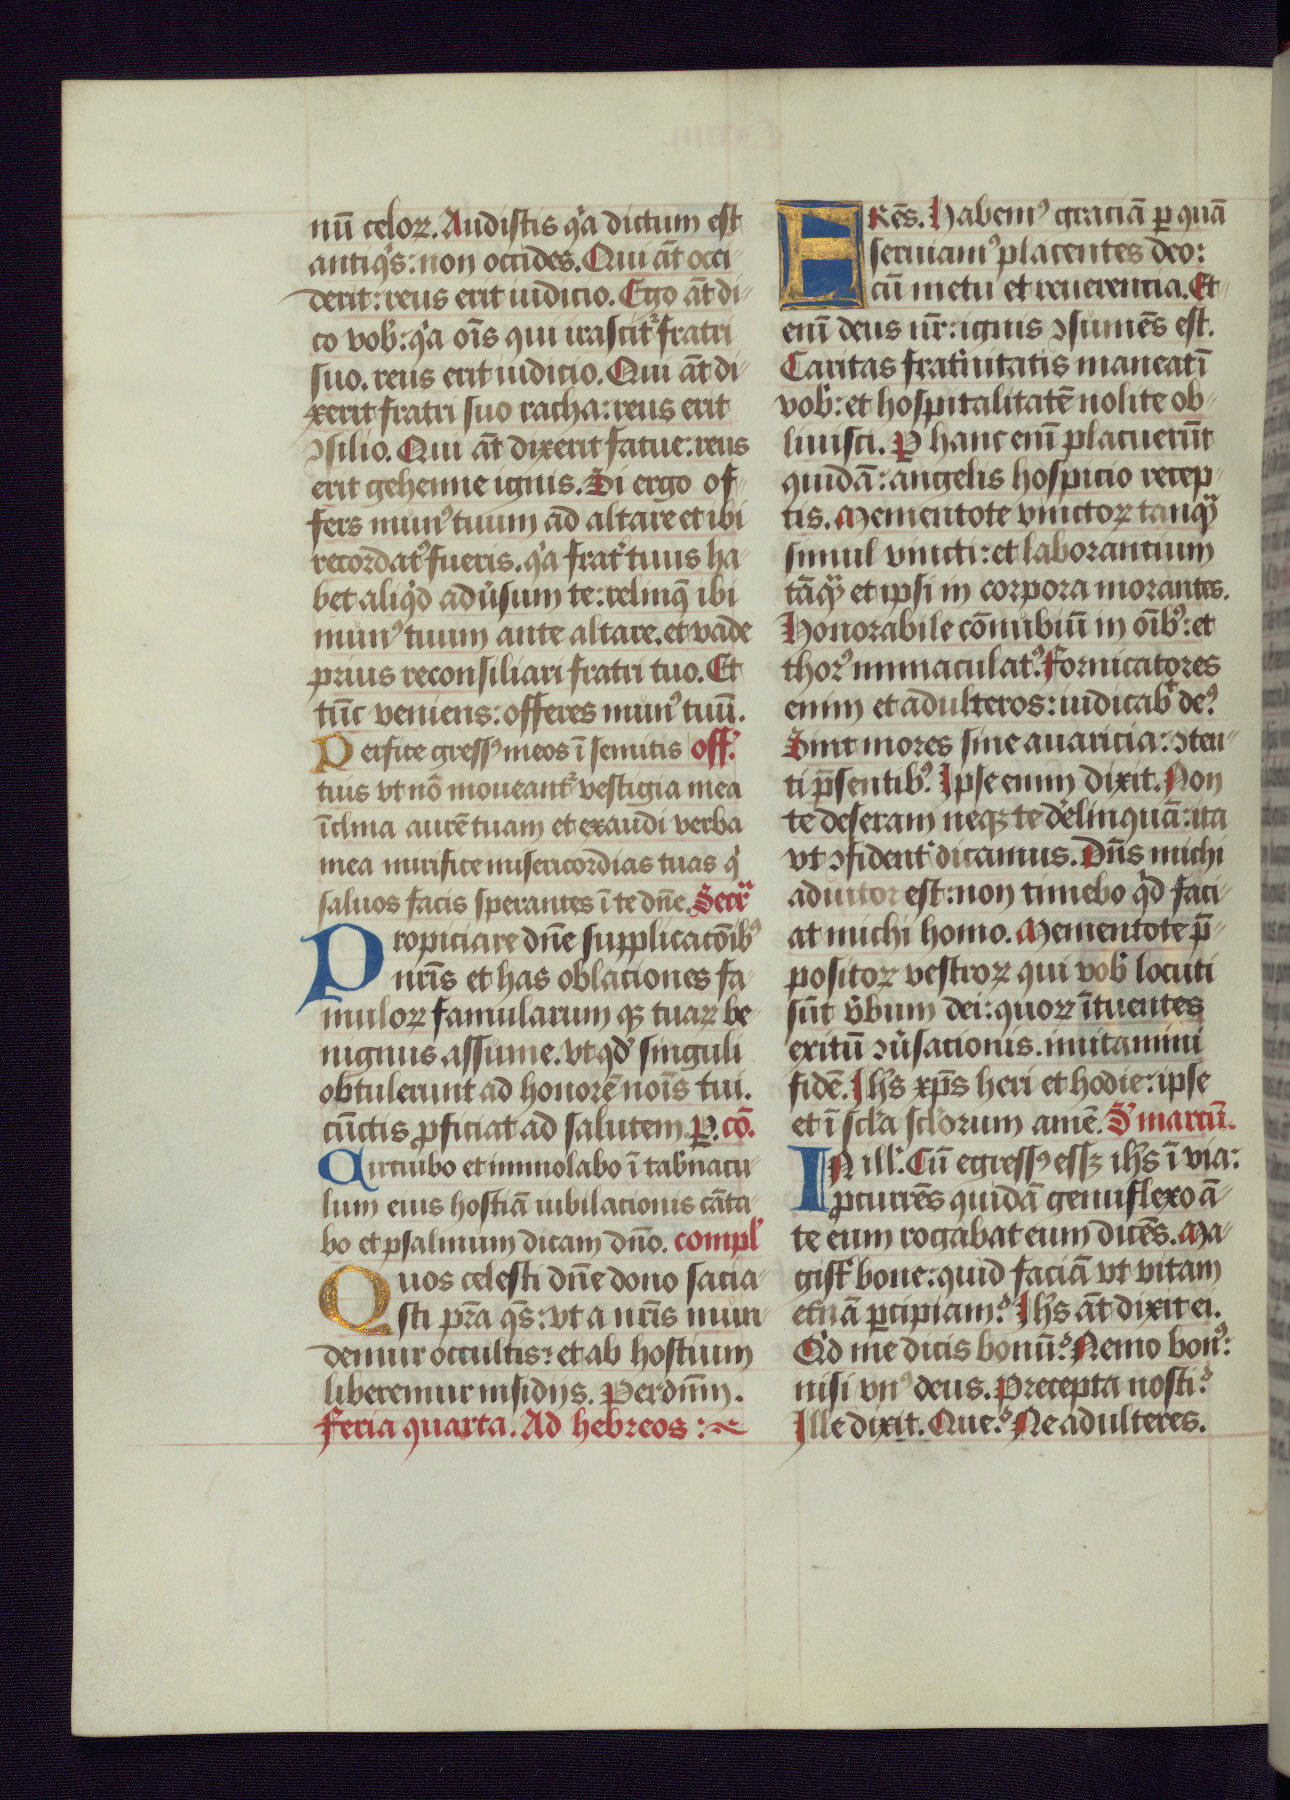 nū celoꝝ. Audistis qͥa dictum est
antiqͥs: non occides. Qui āt occi-
derit: reus erit iudicio. Ego āt di-
co vob: qͥa oīs qui irascit᷑ fratri
suo. reus erit iudicio. Qui āt di-
xerit fratri suo racha: reus erit
ꝯsilio. Qui āt dixerit fatue: reus
erit gehenne ignis. Si ergo of-
fers munꝰ tuum ad altare et ibi
recordatꝰ fueris. qͥa frat᷑ tuus ha-
bet aliqͥd adu̓sum te: relinq̄ ibi
munꝰ tuum ante altare. et vade
prius reconsiliari fratri tuo. Et
tūc veniens: offeres munꝰ tuū.
Perfice gressꝰ meos ī semitis off̓.
tuis vt nō moueant᷑ vestigia mea
īclina aurē tuam et exaudi verba
mea mirifice misericordias tuas qͥ
saluos facis sperantes ī te dn̄e. Secr̄
Propiciare dn̄e supplicacōībꝰ
nr̄is et has oblaciones fa-
muloꝝ famularum qꝫ tuaꝝ be-
nignus assume. vt qd̓ singuli
obtulerunt ad honorē noīs tui.
cūctis ꝓficiat ad salutem. P. cō.
Circuibo et immolabo ī tab̓nacu-
lum eius hostiā iubilacionis cāta-
bo et psalmum dicam dn̄o. compl̓
Quos celesti dn̄e dono sacia-
sti pr̄a qs̄: vt a nr̄is mun-
demur occultis: et ab hostium
liberemur insidijs. Per dn̄m.
Feria quarta. Ad hebreos :~
FRēs. Habemꝰ graciā ꝑ quā
seruiamꝰ placentes deo:
cū metu et reuerencia. Et-
enī deus nr̄: ignis ꝯsumēs est.
Caritas frat̓nitatis maneat ī
vob̓: et hospitalitatē nolite ob-
liuisci. Ꝑ hanc enī placuerūt
quidā: angelis hospicio recep-
tis. Mementote vinctoꝝ tanqͣꝫ
simul vincti: et laborantium
tāqͣꝫ et ipsi in corpora morantes.
Honorabile cōnubiū in oībꝰ: et
thorꝰ immaculatꝰ. Fornicatores
enim et adulteros: iudicab᷑ deꝰ.
Sint mores sine auaricia: ꝯten-
ti p̄sentibꝰ. Ipse enim dixit. Non
te deseram neqꝫ te d̓elinquā: ita
vt ꝯfident᷑ dicamus. Dn̄s michi
adiutor est: non timebo qͥd faci-
at michi homo. Mementote p̄-
positoꝝ vestroꝝ qui vob̓ locuti
sūt v̓bum dei: quoꝝ ītuentes
exitū ꝯu̓sacionis. imitamini
fidē. Ih̄s xp̄s heri et hodie: ipse
et ī scl̓a scl̓orum amē. S̓ marcū.
IN ill̓. Cū egressꝰ essꝫ ih̄s ī via:
ꝓcurrēs quidā genuflexo ā-
te eum rogabat eum dicēs. Ma-
gist᷑ bone: quid faciā vt vitam
et̓nā ꝑcipiam? Ih̄s āt dixit ei.
Qͥd me dicis bonū? Nemo bonꝰ:
nisi vnꝰ deus. Precepta nosti?
Ille dixit. Que? Ne adulteres.